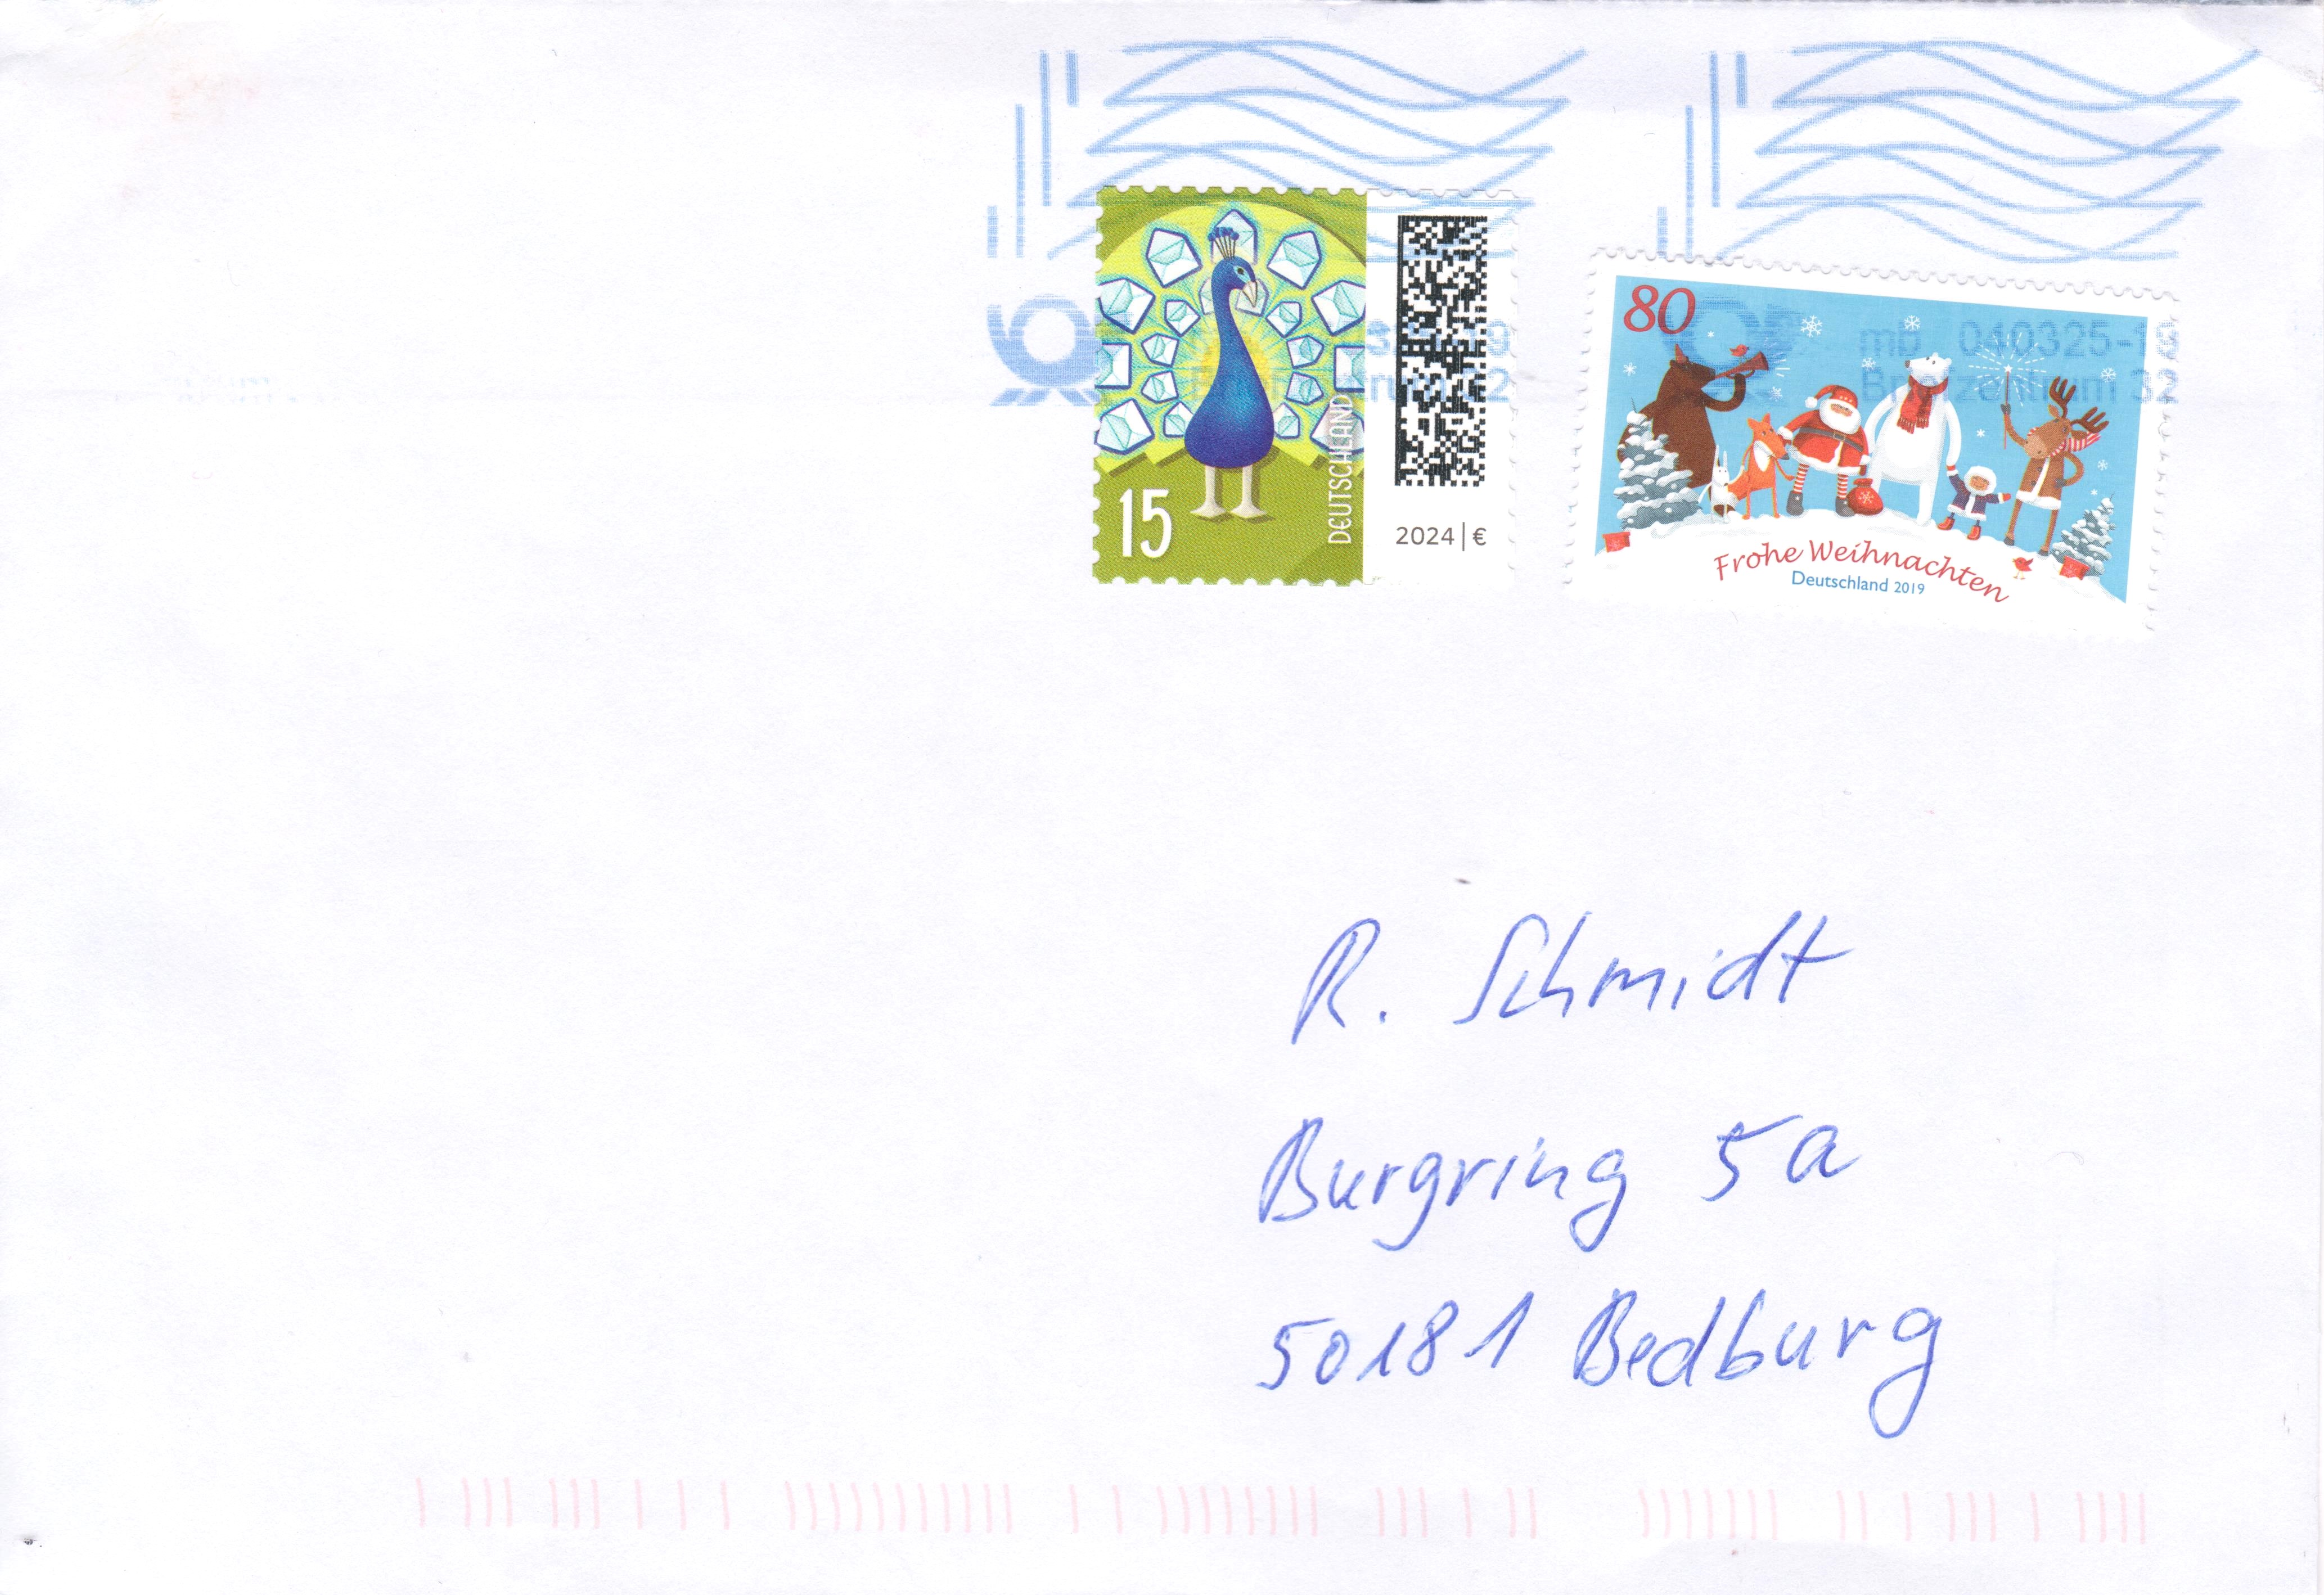 mb 040325-19
Briefzentrum 32
15
DEUTSCHLAND
2024|€
80
Frohe Weihnachten
Deutschland 2019
R. Schmidt
Burgring 5a
50181 Bedburg